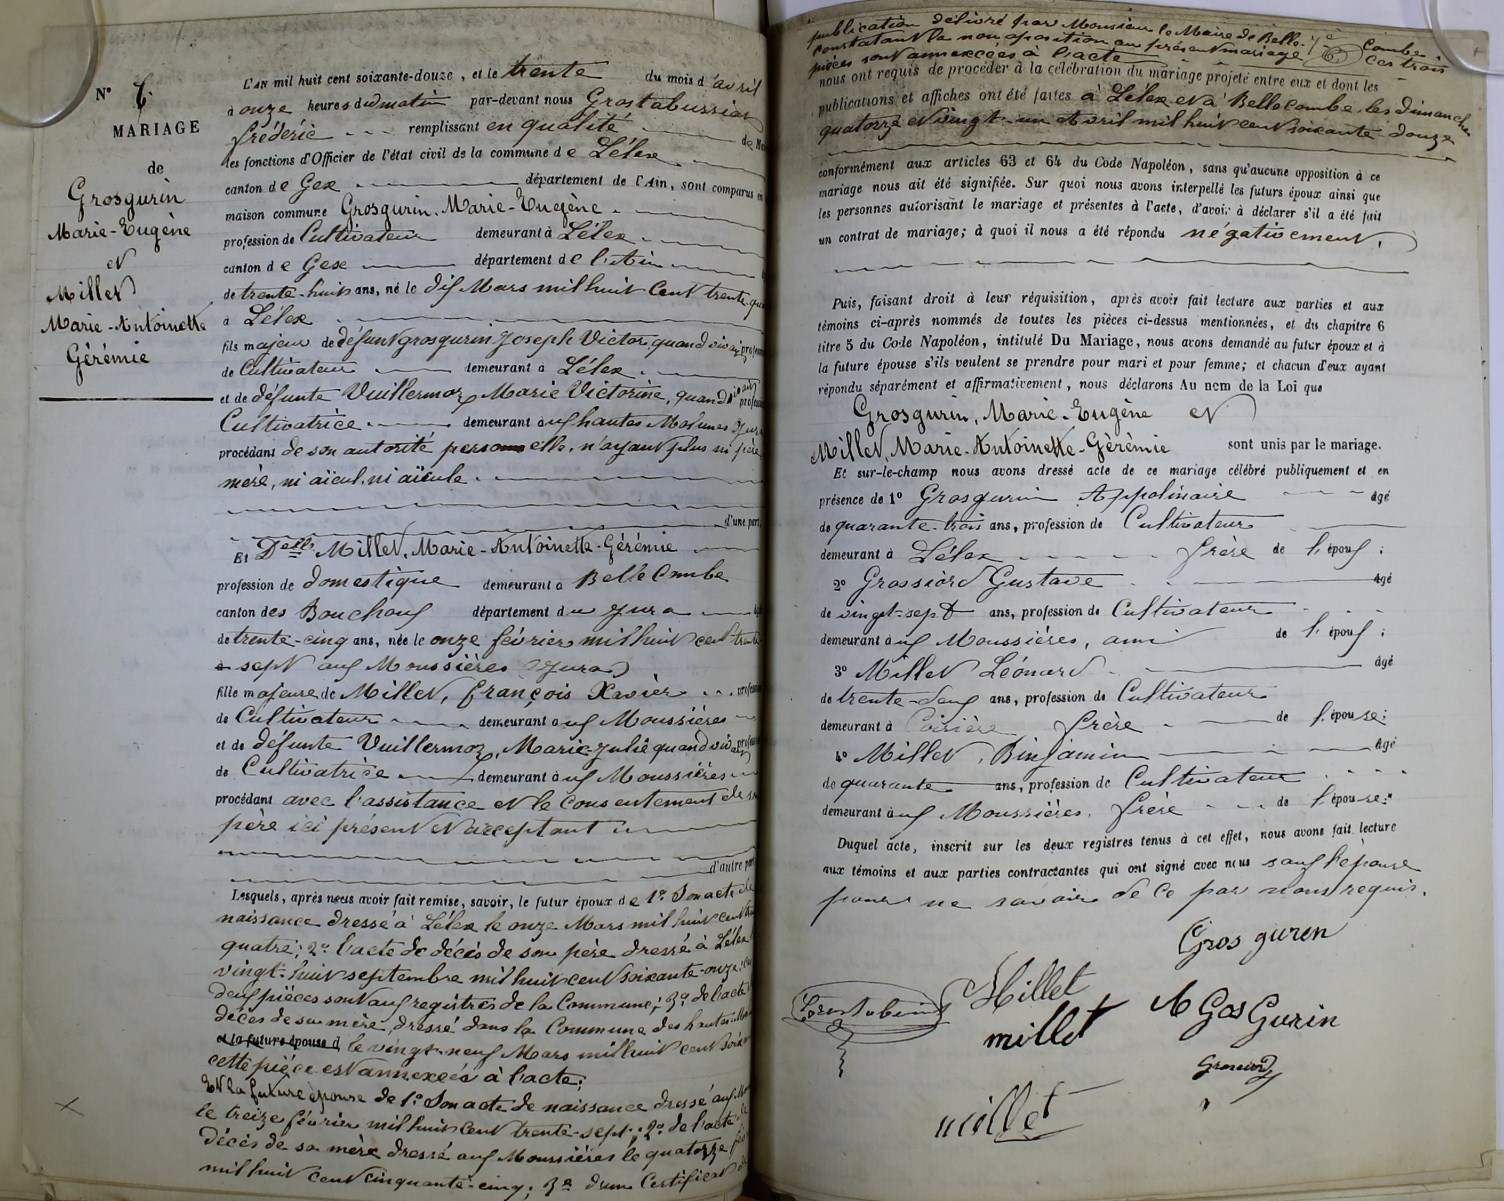 N° 6.
MARIAGE
de
Grosgurin
Marie-Eugène
et
Millet
Marie-Antoinette
Gérémie
L'AN mil huit cent soixante-douze, et le trente du mois d'avril
à onze heures du matin par-devant nous Grostabussiat
frédéric remplissant en qualité de
les fonctions d'Officier de l'état civil de la commune de Lélex
canton de Gex département de l'Ain, sont comparus en
maison commune Grosgurin, Marie-Eugène
profession de Cultivateur demeurant à Lélex
canton de Gex département de l'Ain
de trente-huit ans, né le dix Mars mil huit Cent trente
à Lélex
fils majeur de défunt grosgurin Joseph Victor, quand vivait
de Cultivateur demeurant à Lélex
et de défunte Vuillermoz Marie Victorine, quand vivait
Cultivatrice demeurant aux hautes Molunes Jura
procédant de son autorité personnelle, n'ayant plus ni père
mère, ni aïeul, ni aïeule
d'une part,
Et Delle Millet, Marie-Antoinette-Gérémie
profession de domestique demeurant à Bellecombe
canton des Bouchoux département du Jura
de trente-cinq ans, née le onze février mil huit cent trente
sept aux Moussières (Jura)
fille majeure de Millet, françois Xavier
de Cultivateur demeurant aux Moussières
et de défunte Vuillermoz, Marie-Julie quand vivait
de Cultivatrice demeurant aux Moussières
procédant avec l'assistance et le Consentement de son
père ici présent et acceptant
d'autre part
Lesquels, après nous avoir fait remise, savoir, le futur époux de 1° Son acte de
naissance dressé à Lélex le onze Mars mil huit cent
quatre; 2° l'acte de décès de son père dressé à Lélex
vingt-huit septembre mil huit cent soixante-onze
deux pièces sont aux registres de la Commune; 3° de l'acte
décès de sa mère, dressé dans la Commune des hautes
et la future épouse d le vingt-neuf Mars mil huit cent
cette pièce est annexée à l'acte;
Et la future épouse de 1° Son acte de naissance dressé aux
le treize février mil huit Cent trente-sept; 2° de l'acte de
décès de sa mère dressé aux Moussières le quatorze
mil huit cent cinquante-cinq; 3° d'un Certificat de
publication délivré par Monsieur le Maire de Bellecombe
constatant la non opposition au présent mariage ces trois
pièces sont annexées à l'acte
nous ont requis de procéder à la célébration du mariage projeté entre eux et dont les
publications et affiches ont été faites à Lélex et à Bellecombe les dimanches
quatorze et vingt-un Avril mil huit cent soixante-douze
conformément aux articles 63 et 64 du Code Napoléon, sans qu'aucune opposition à ce
mariage nous ait été signifiée. Sur quoi nous avons interpellé les futurs époux ainsi que
les personnes autorisant le mariage et présentes à l'acte, d'avoir à déclarer s'il a été fait
un contrat de mariage; à quoi il nous a été répondu négativement.
Puis, faisant droit à leur réquisition, après avoir fait lecture aux parties et aux
témoins ci-après nommés de toutes les pièces ci-dessus mentionnées, et du chapitre 6
titre 5 du Code Napoléon, intitulé Du Mariage, nous avons demandé au futur époux et à
la future épouse s'ils veulent se prendre pour mari et pour femme; et chacun d'eux ayant
répondu séparément et affirmativement, nous déclarons Au nom de la Loi que
Grosgurin, Marie-Eugène et
Millet, Marie-Antoinette-Gérémie sont unis par le mariage.
Et sur-le-champ nous avons dressé acte de ce mariage célébré publiquement et en
présence de 1° Grosgurin Appolinaire âgé
de quarante-trois ans, profession de Cultivateur
demeurant à Lélex frère de l'époux;
2° Grossiord Gustave âgé
de vingt-sept ans, profession de Cultivateur
demeurant aux Moussières, ami de l'époux;
3° Millet Léonard âgé
de trente-deux ans, profession de Cultivateur
demeurant à frère de l'épouse;
4° Millet, Binjamin âgé
de quarante ans, profession de Cultivateur
demeurant aux Moussières, frère de l'épouse.
Duquel acte, inscrit sur les deux registres tenus à cet effet, nous avons fait lecture
aux témoins et aux parties contractantes qui ont signé avec nous sauf l'épouse
pour ne savoir de ce par nous requis.
Gros guren
Millet
millet
A Gos Gurin
Grossiord
millet